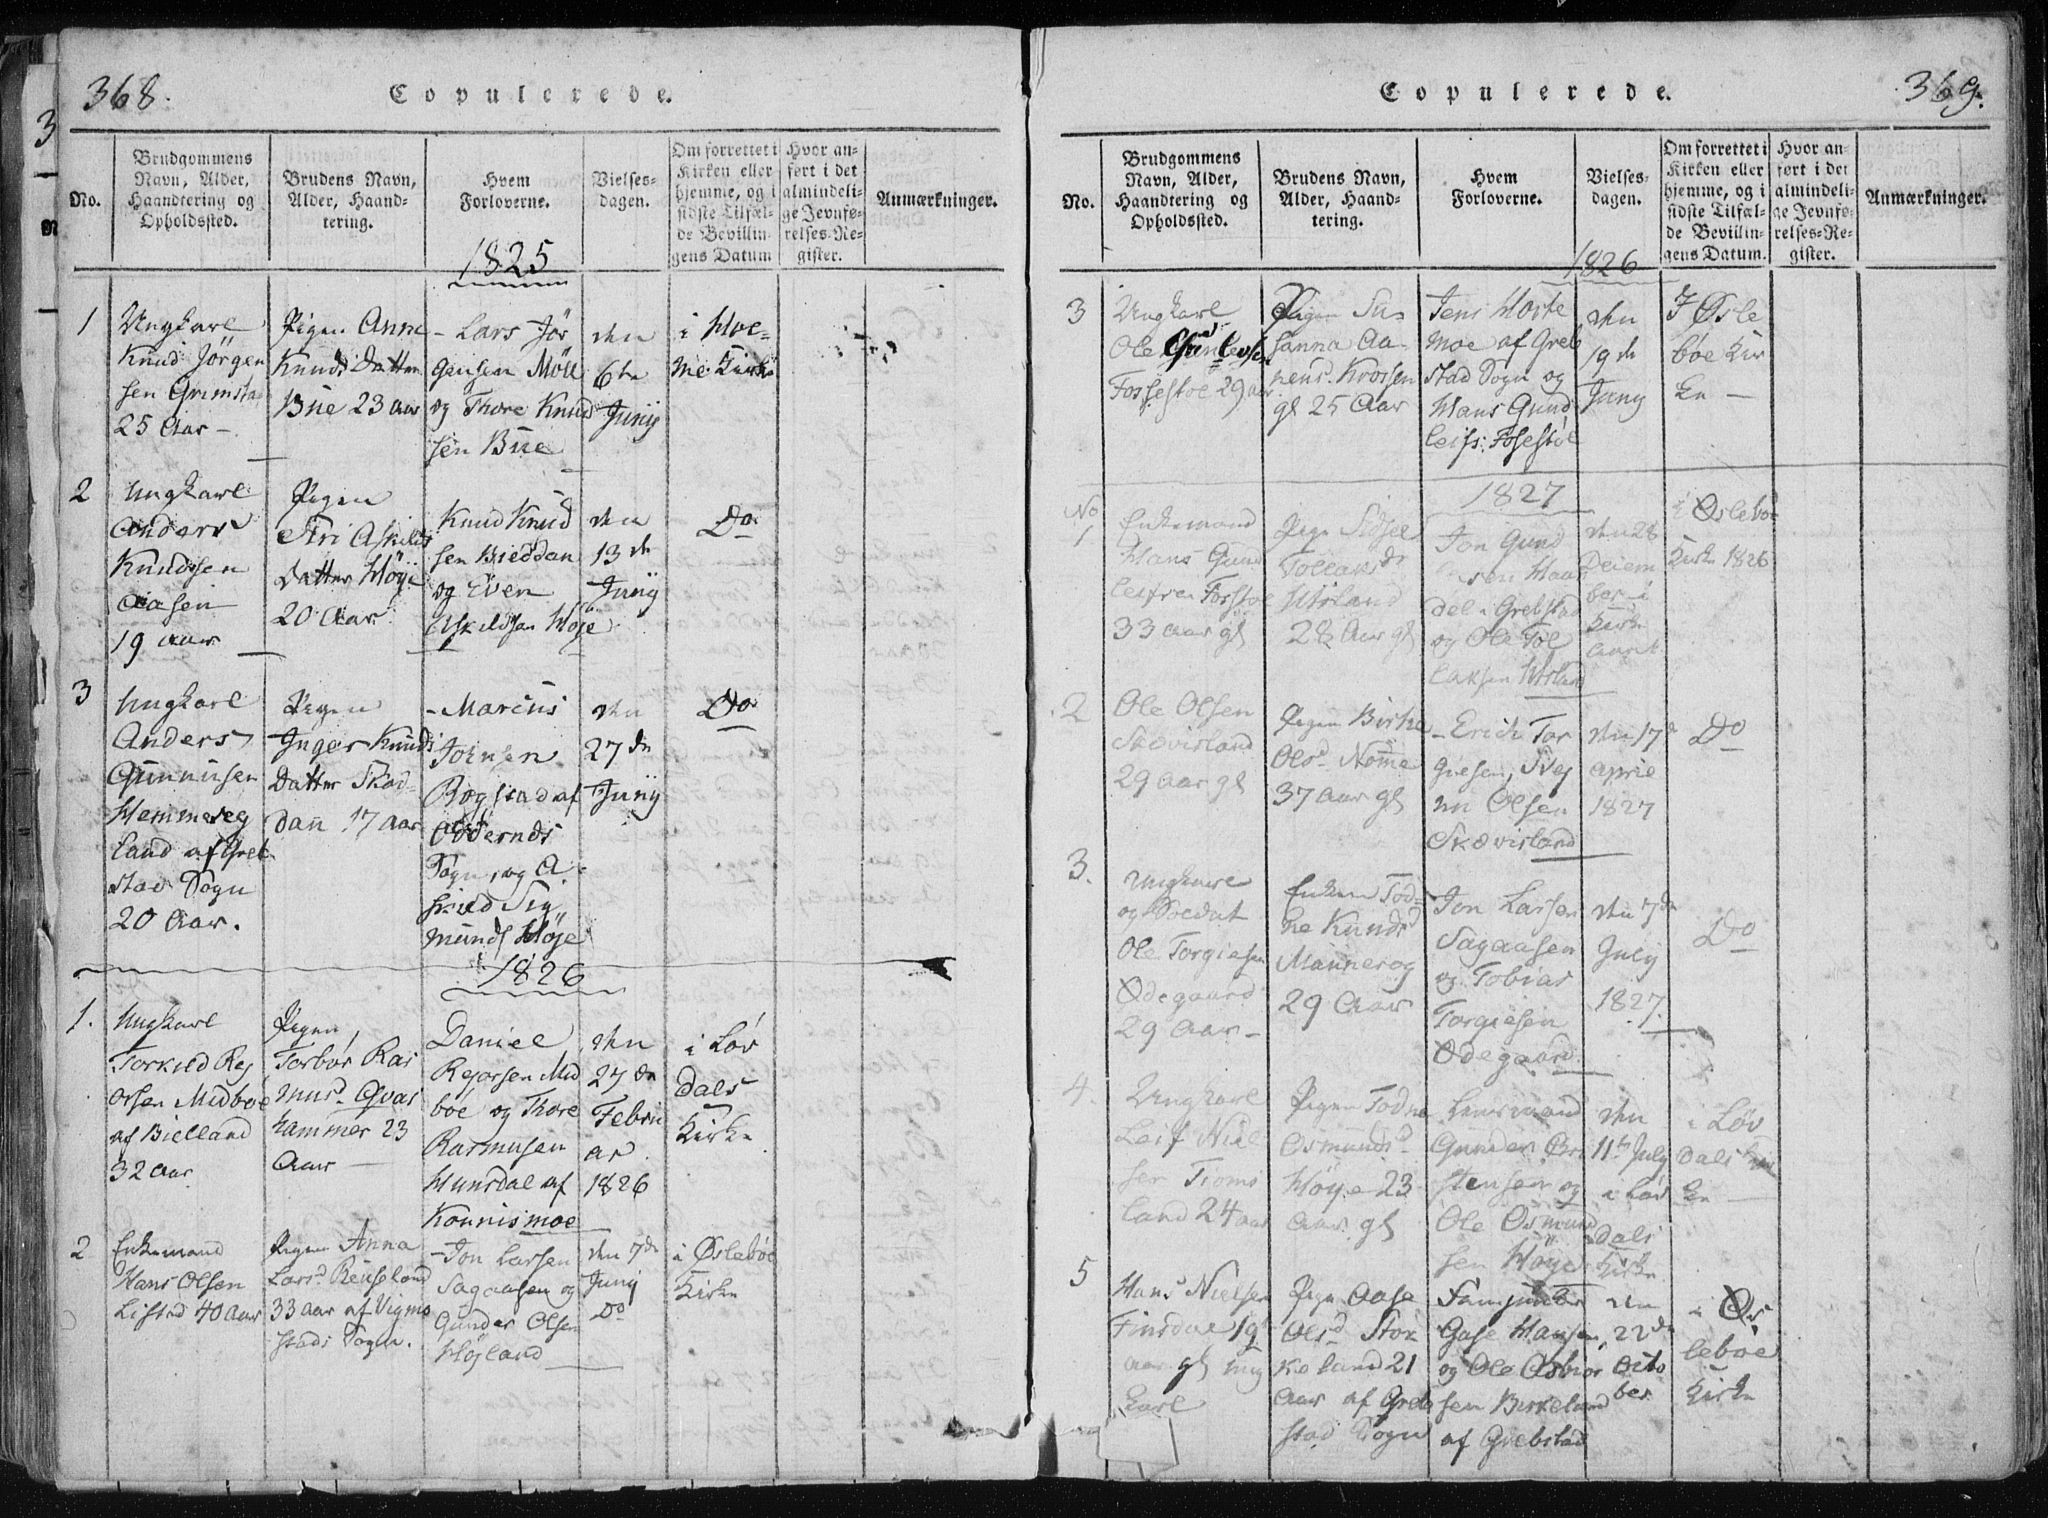 368.
Copulerede.
No.
Brudgommens
Navn, Alder,
Haandtering og
Opholdssted.
Brudens Navn,
Alder, Haand-
tering.
Hvem
Forloverne.
Vielses-
dagen.
Om forrettet i
Kirken eller
hjemme, og i
sidste Tilfæl-
de Bevillin-
gens Datum
Hvor an-
ført i det
almindeli-
ge Jevnfø-
relses-Re-
gister.
Anmærkninger.
1825
1
Ungkarl
Knud Jörgen
sen Grimsta
25 Aar –
Pigen Anne
Knuds Datter
Bue 23 aar
– Lars Jör
gensen Möll
og Thore Knud
sen Bue
den
6te
Junij
i Hoe-
me Kirke
2
Ungkarl
Anders
Knudssen
Aasen
19 aar
Pigen
Siri Askilds
Datter Höye
20 Aar
Knud Knud
sen Bieddan
og Even
Askildsen Höje
den
13de
Junij
Do
3
Ungkarl
Anders
Gunnusen
Hemmereg
land af Greb
stad Sogn
20 Aar.
Pigen
Inger Knuds
Datter Skad-
dan 17 aar
– Marcus
Tornsen
Rogstad af
Oddernds
Sogn, og A-
skild Sig
munds Höje
den
27de
Junij
Do
1826
1.
Ungkarl
Torkild Rej
orsen Midboe
af Bielland
32 Aar
Pigen
Torbor Ras
musd. Qvas
hammer 23
Aar –
Daniel
Rejorsen Mid
böe og Thore
Rasmusen
Hunsdal af
Konnismoe
den
27de
Febru
ar
1826
i Löv
dals
Kirke
2
Enkemand
Hans Olsen
Listad 40 Aar
Pigen Anna
Larsd. Reuseland
33 aar af Vigmo
stads Sogn.
– Jon Larsen
Sagaasen og
Gunder Olsen
Höjland
den 7de
Junij
Do
i Øslebøe
Kirke
369.
Copulerede.
No.
Brudgommens
Navn, Alder,
Haandtering og
Opholdssted.
Brudens Navn,
Alder, Haand-
tering.
Hvem
Forloverne.
Vielses-
dagen.
Om forrettet i
Kirken eller
hjemme, og i
sidste Tilfæl-
de Bevillin-
gens Datum.
Hvor an-
ført i det
almindeli-
ge Jevnfø-
relses-Re-
gister.
Anmærkninger.
1826
3
Ungkarl
Ole Gunlevsen
Fossestoe 29 aar
Pigen Su-
sanna Aa-
nensd. Krossen
gl 25 Aar
Jens Horte
moe af Greb
stad Sogn og
Hans Gund
leifs: Fosestöl
den
19de
Junij
I Øsle
böe Kir
ke –
1827
No
1
Enkemand
Hans Gund
leifsen Fosstoe
33 aar gl
Pigen Sidsel
Tollaksd
Usland
28 Aar gl
Jon Gund
sen Haar
dal i Grebstad
og Ole Tol
laksen Usland
den 28
Decem
ber i
Kirke
aaret
i Øslebø-
Kirke 1826
2
Ole Olsen
Skævisland
29 aar gl
Pigen Birthe
Olsd. Nome
37 aar gl
– Erich Tor
giesen, Svej
nu Olsen
Skævisland
den 17d
April
1827
Do
3.
Ungkarl
og Soldat
Ole Torgiesen
Ødegaard
29 Aar –
Enken Tod-
ne Knudsd
Mannerog
29 Aar
Jon Larsen
Sagaasen
og Tobias
Torgiesen
Ødegaard
den 7de
July
1827.
Do
4.
Ungkarl
Leif Niel
sen Tioms
land 24 aar
Pigen Todne
Osmundsd.
Höye 23
aar gl
Lensmand
Gunder Br.
stensen og
Ole Osmund
sen Höye
den
11te July
i Löv
dals
Kirke
i Löv
dals Kir
ke –
5
Hans Nielsen
Finsdal 19
aar gl ung
karl
Pigen Aase
Olsd Stok
keland 21
Aar af Greb
stad Sogn
Gase Hansen
og Ole Asbiör
sen Birkeland
af Grebstad
den
22de
Octo
ber
i Øs
leboe
Kirke